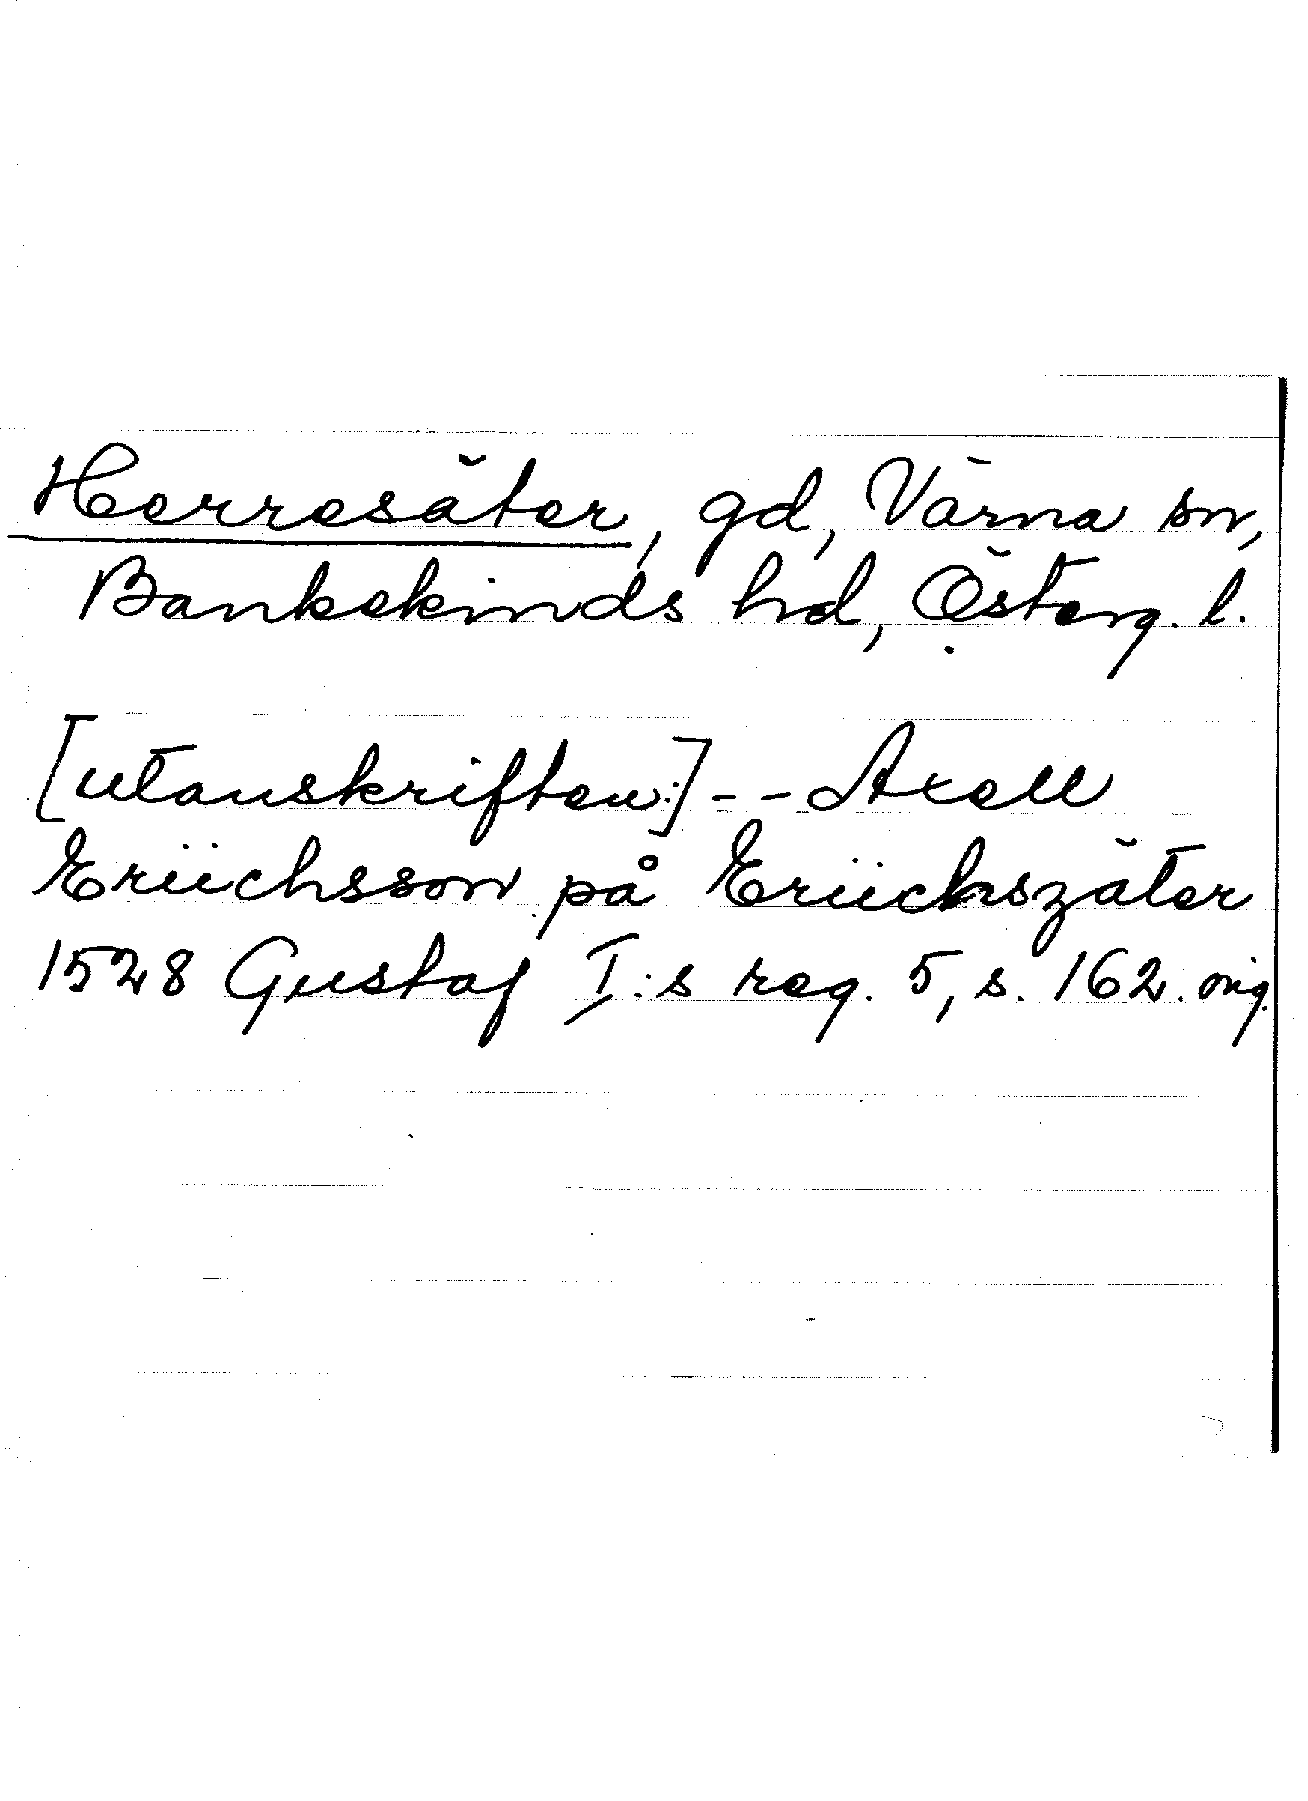 Herresäter, gd, Värna sn,
Bankekinds hd, Österg. l.
[utanskriften:] - - Axell
Eriichsson på Eriichszäter
1528 Gustaf I:s reg. 5, s. 162. orig.